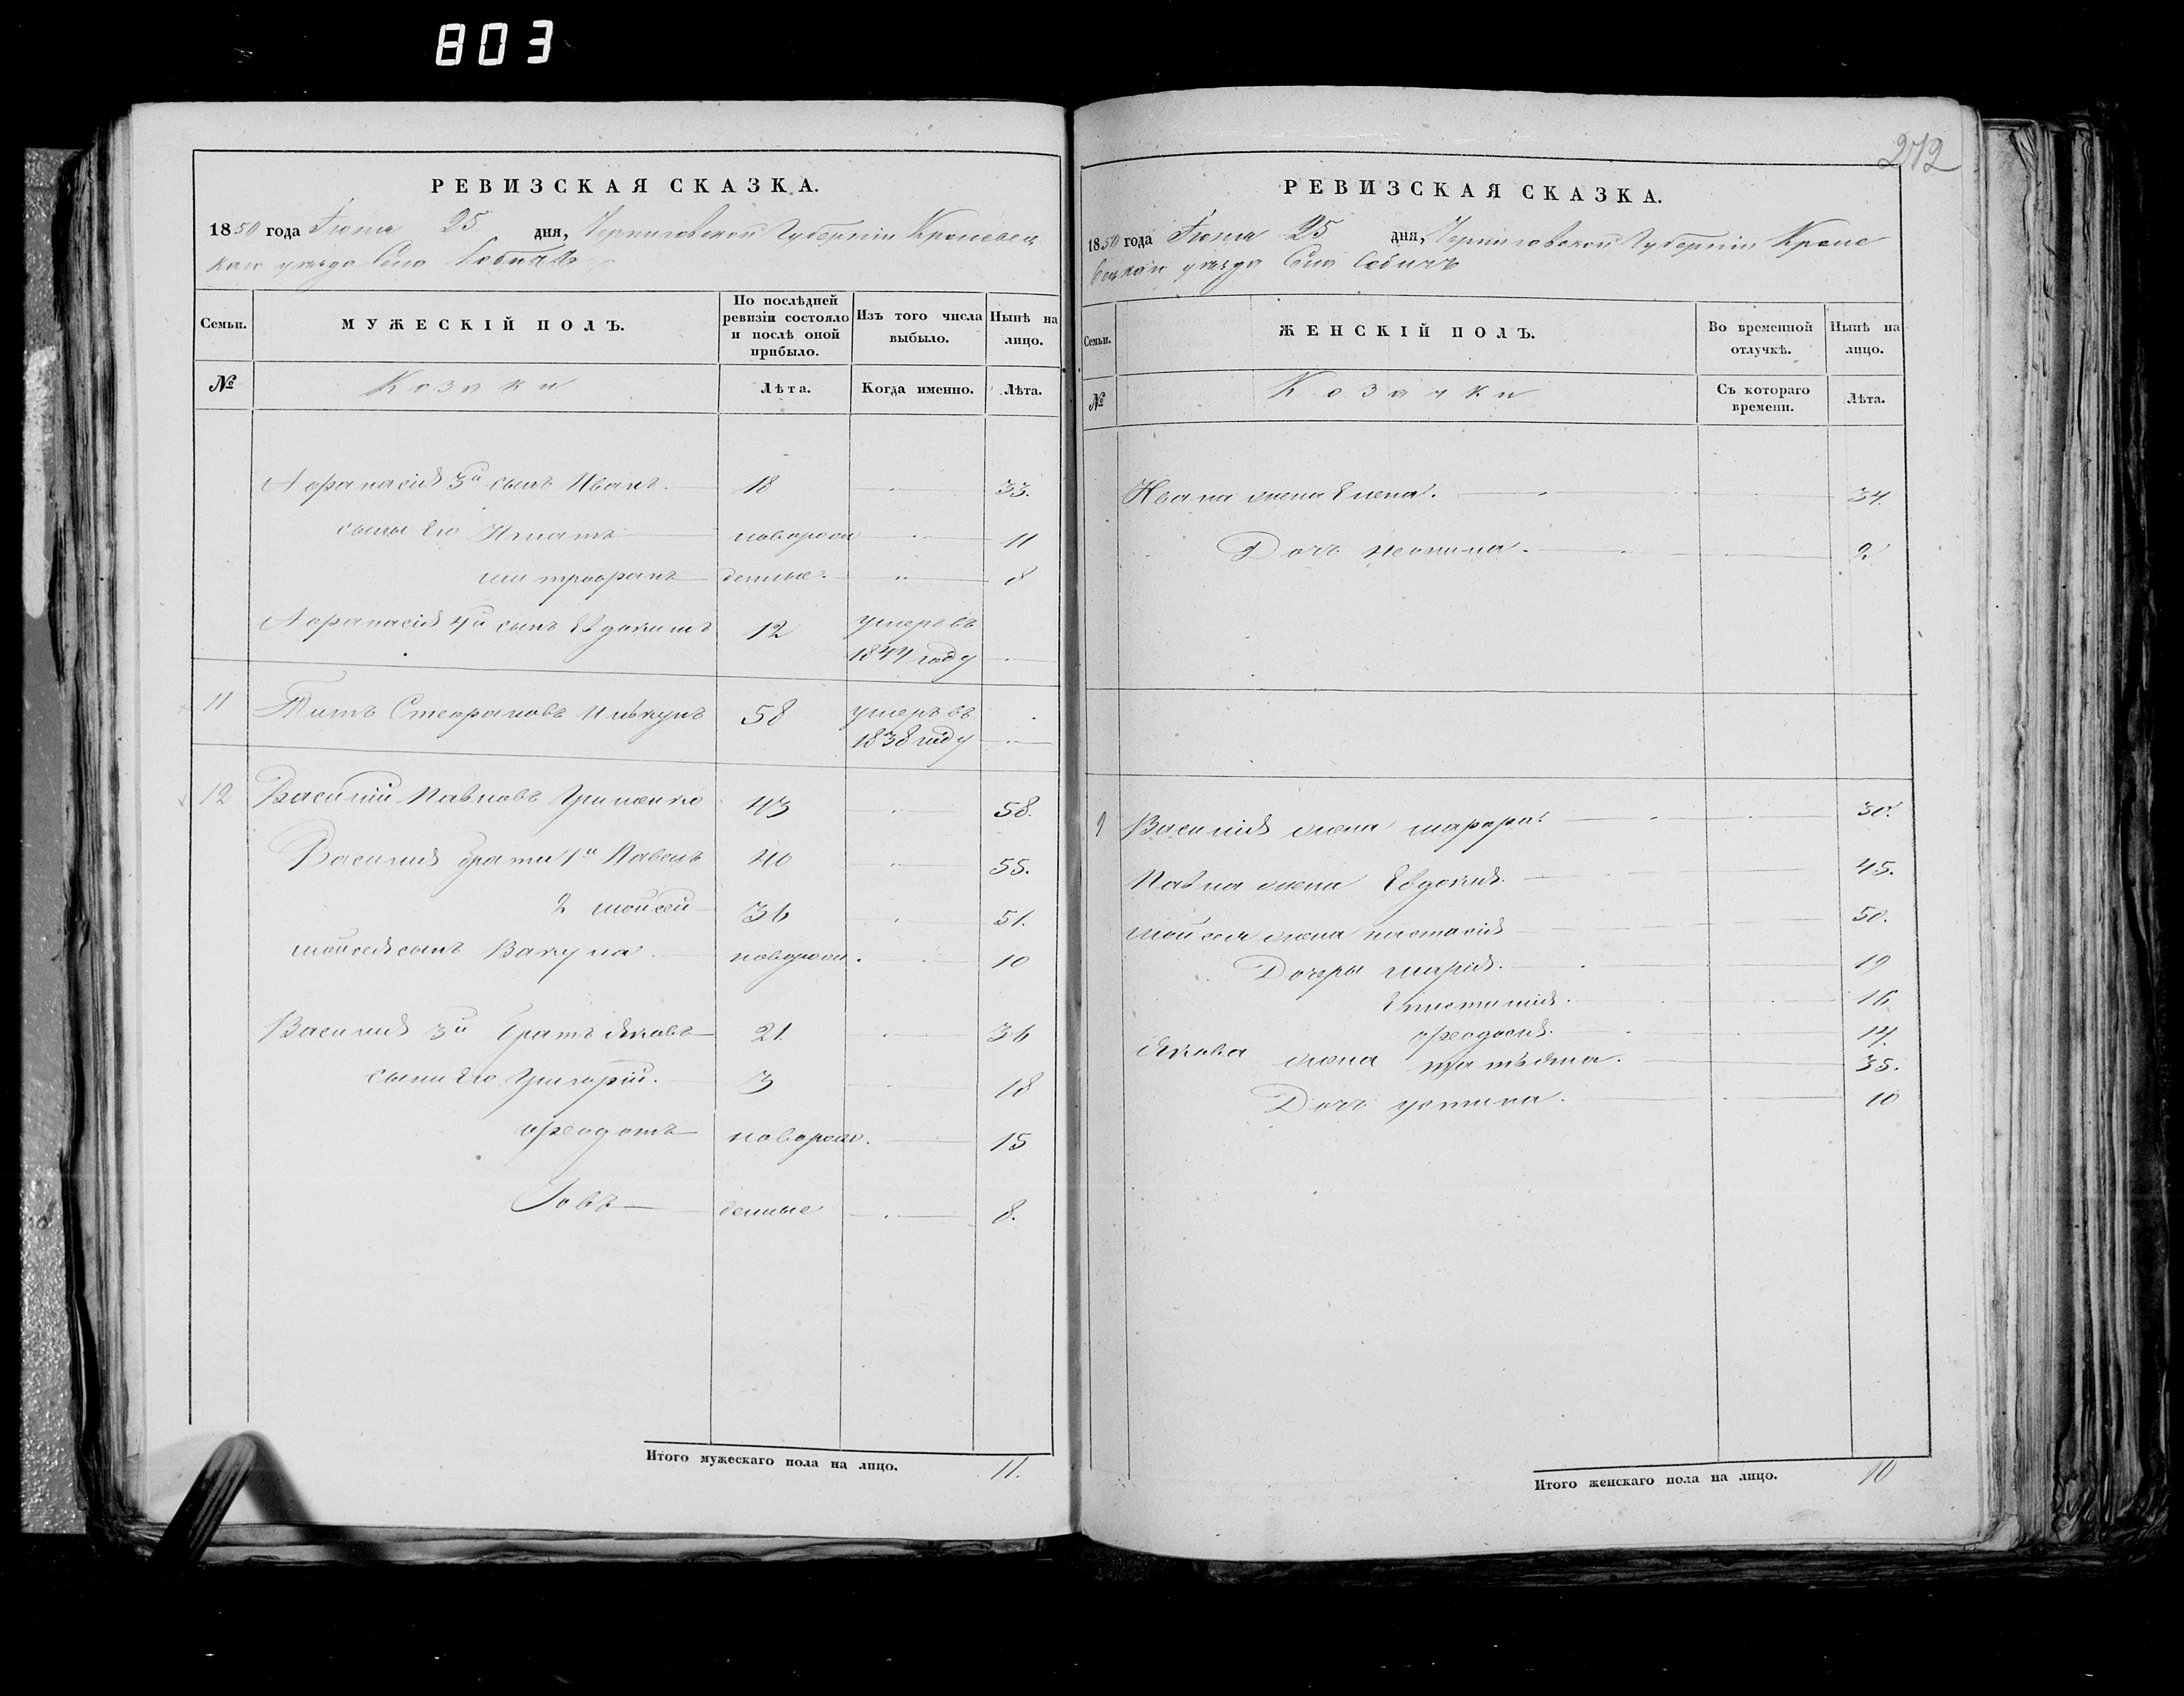 803
РЕВИЗСКАЯ СКАЗКА.
1850 года Июня 25 дня, Черниговской Губерніи Кролевец
каго уезда Села Собичъ
Семьи.
МУЖЕСКІЙ ПОЛЪ.
По послѣдней ревизіи состояло и послѣ оной прибыло.
Изъ того числа выбыло.
Нынѣ на лицо.
№
Козаки
Лѣта.
Когда именно.
Лѣта.
Афанасія 3й сынъ Иванъ. 18 33.
сыны Его Игнатъ новорож 11
митрофанъ денные. 8
Афанасія 4й сынъ Евдокимъ 12 умеръ въ
1844 году
11 Титъ Стефановъ 58 умеръ въ
1838 году
12 Василій Павловъ Гриненко 43 58.
Василія братья 1й Павелъ 40 55.
2 мойсей 36 51.
мойсея сынъ Вакула новорож. 10
Василія 3й братъ Яковъ 21. 36
сыны Его Григорій. 3 18
феодотъ новорож. 15
Іовъ денные 8.
Итого мужескаго пола на лицо. 11.
272
РЕВИЗСКАЯ СКАЗКА.
1850 года Июня 25 дня, Черниговской Губерніи Кроле
вецкаго уезда Села Собичъ
Семьи.
ЖЕНСКІЙ ПОЛЪ.
Во временной отлучкѣ.
Нынѣ на лицо.
№
Козачки
Съ котораго времени.
Лѣта.
Ивана жена Елена. 34.
Дочь неонила. 2
Василія жена марфа. 30.
Павла жена Евдокія. 45.
мойсея жена настасія 50.
Дочеры марія. 19
16
феодосія. 14.
Якова жена татьяна. 35.
Дочь устина. 10
Итого женскаго пола на лицо. 10